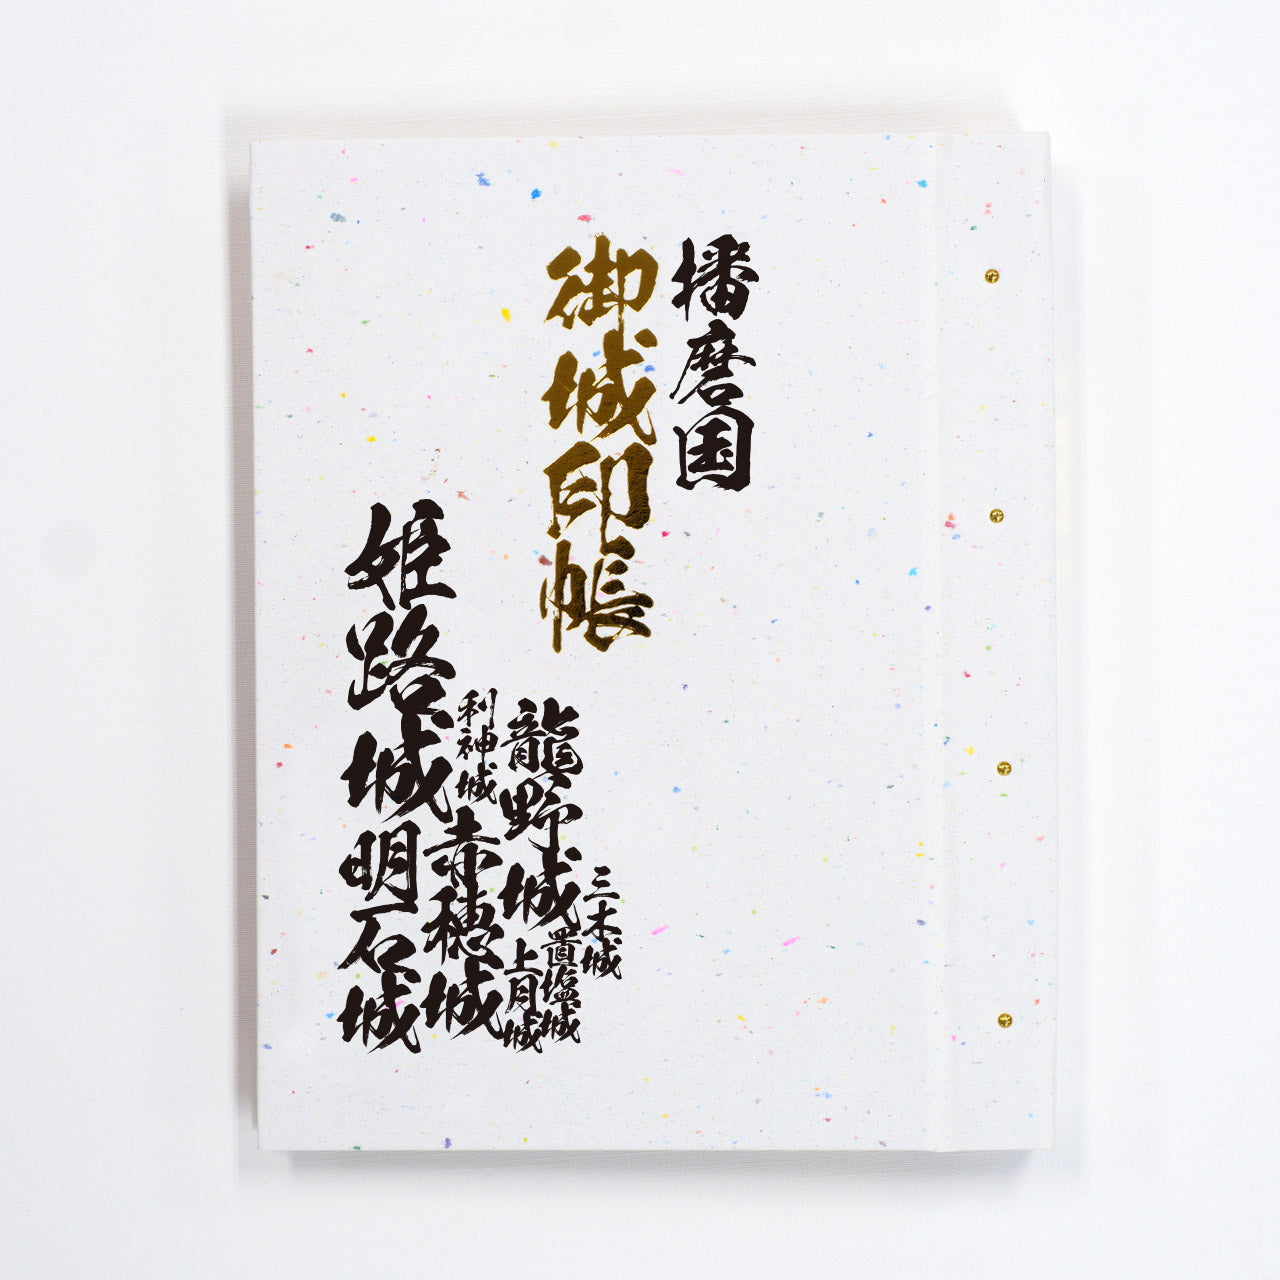 播磨国
御城印帳
三木城
置塩城
龍野城
上月城
利神城
赤穂城
姫路城
明石城